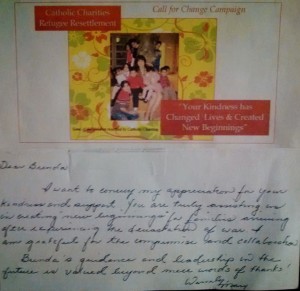 Catholic Charities
Refugee Resettlement
Call for Change Campaign
"Your Kindness has
Changed Lives & Created
New Beginnings"
Dear Brenda:
I want to convey my appreciation for your
kindness and support. You are truly assisting us
in creating "new beginnings" for families arriving
after experiencing the devastation of war. I
am grateful for the compromise and collaboration
Brenda's guidance and leadership in the
future is valued beyond mere words of thanks!
Warmly,